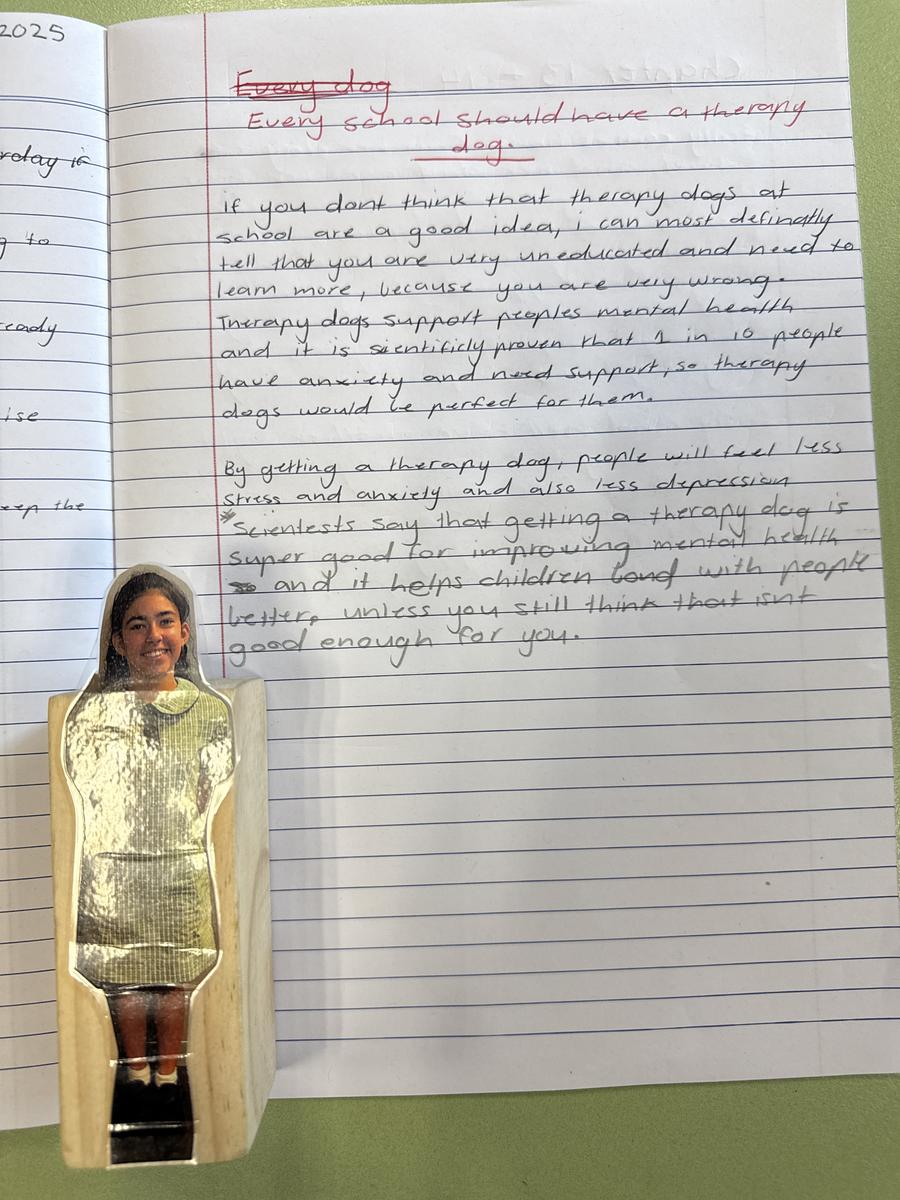 2025
rday is
g to
ready
ise
eep the
Every dog
Every school should have a therapy
dog.
if you dont think that therapy dogs at
school are a good idea, i can most definatly
tell that you are very uneducated and need to
learn more, because you are very wrong.
Therapy dogs support peoples mental health
and it is sientificly proven that 1 in 10 people
have anxiety and need support, so therapy
dogs would be perfect for them.
By getting a therapy dog, people will feel less
stress and anxiety and also less depression
*Scientests say that getting a therapy dog is
super good for improving mental health
and it helps children bond with people
better, unless you still think that isnt
good enough for you.